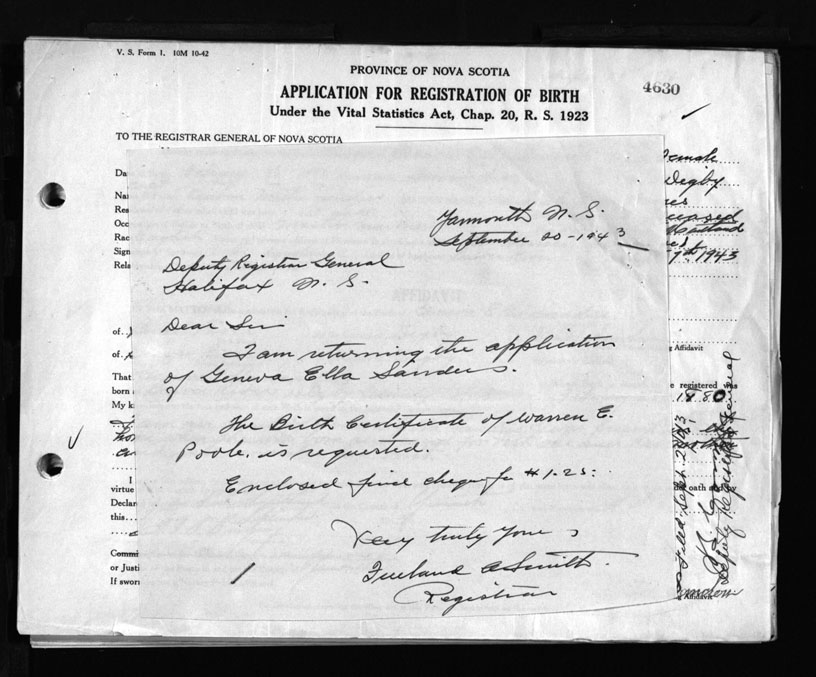 V. S. Form 1. 10M 10-42
PROVINCE OF NOVA SCOTIA
4630
APPLICATION FOR REGISTRATION OF BIRTH
Under the Vital Statistics Act, Chap. 20, R. S. 1923
TO THE REGISTRAR GENERAL OF NOVA SCOTIA
Female
Digby
1943
Yarmouth N. S.
September 20-1943
Deputy Registrar General
Halifax N. S.
Dear Sir
I am returning the application
of Geneva Ella Sanders.
The Birth Certificate of Warren E.
Poole. is requested.
Enclosed find cheque for $1.25.
Very truly yours
Freeland A Smith.
Registrar
AFFIDAVIT
of
of
Affidavit
That
born
e registered was
1880
My k
I
virtue
oath and
Declar
this
or Justi
If swor
Filed Sept. 21/43
Deputy Registrar General
Affidavit